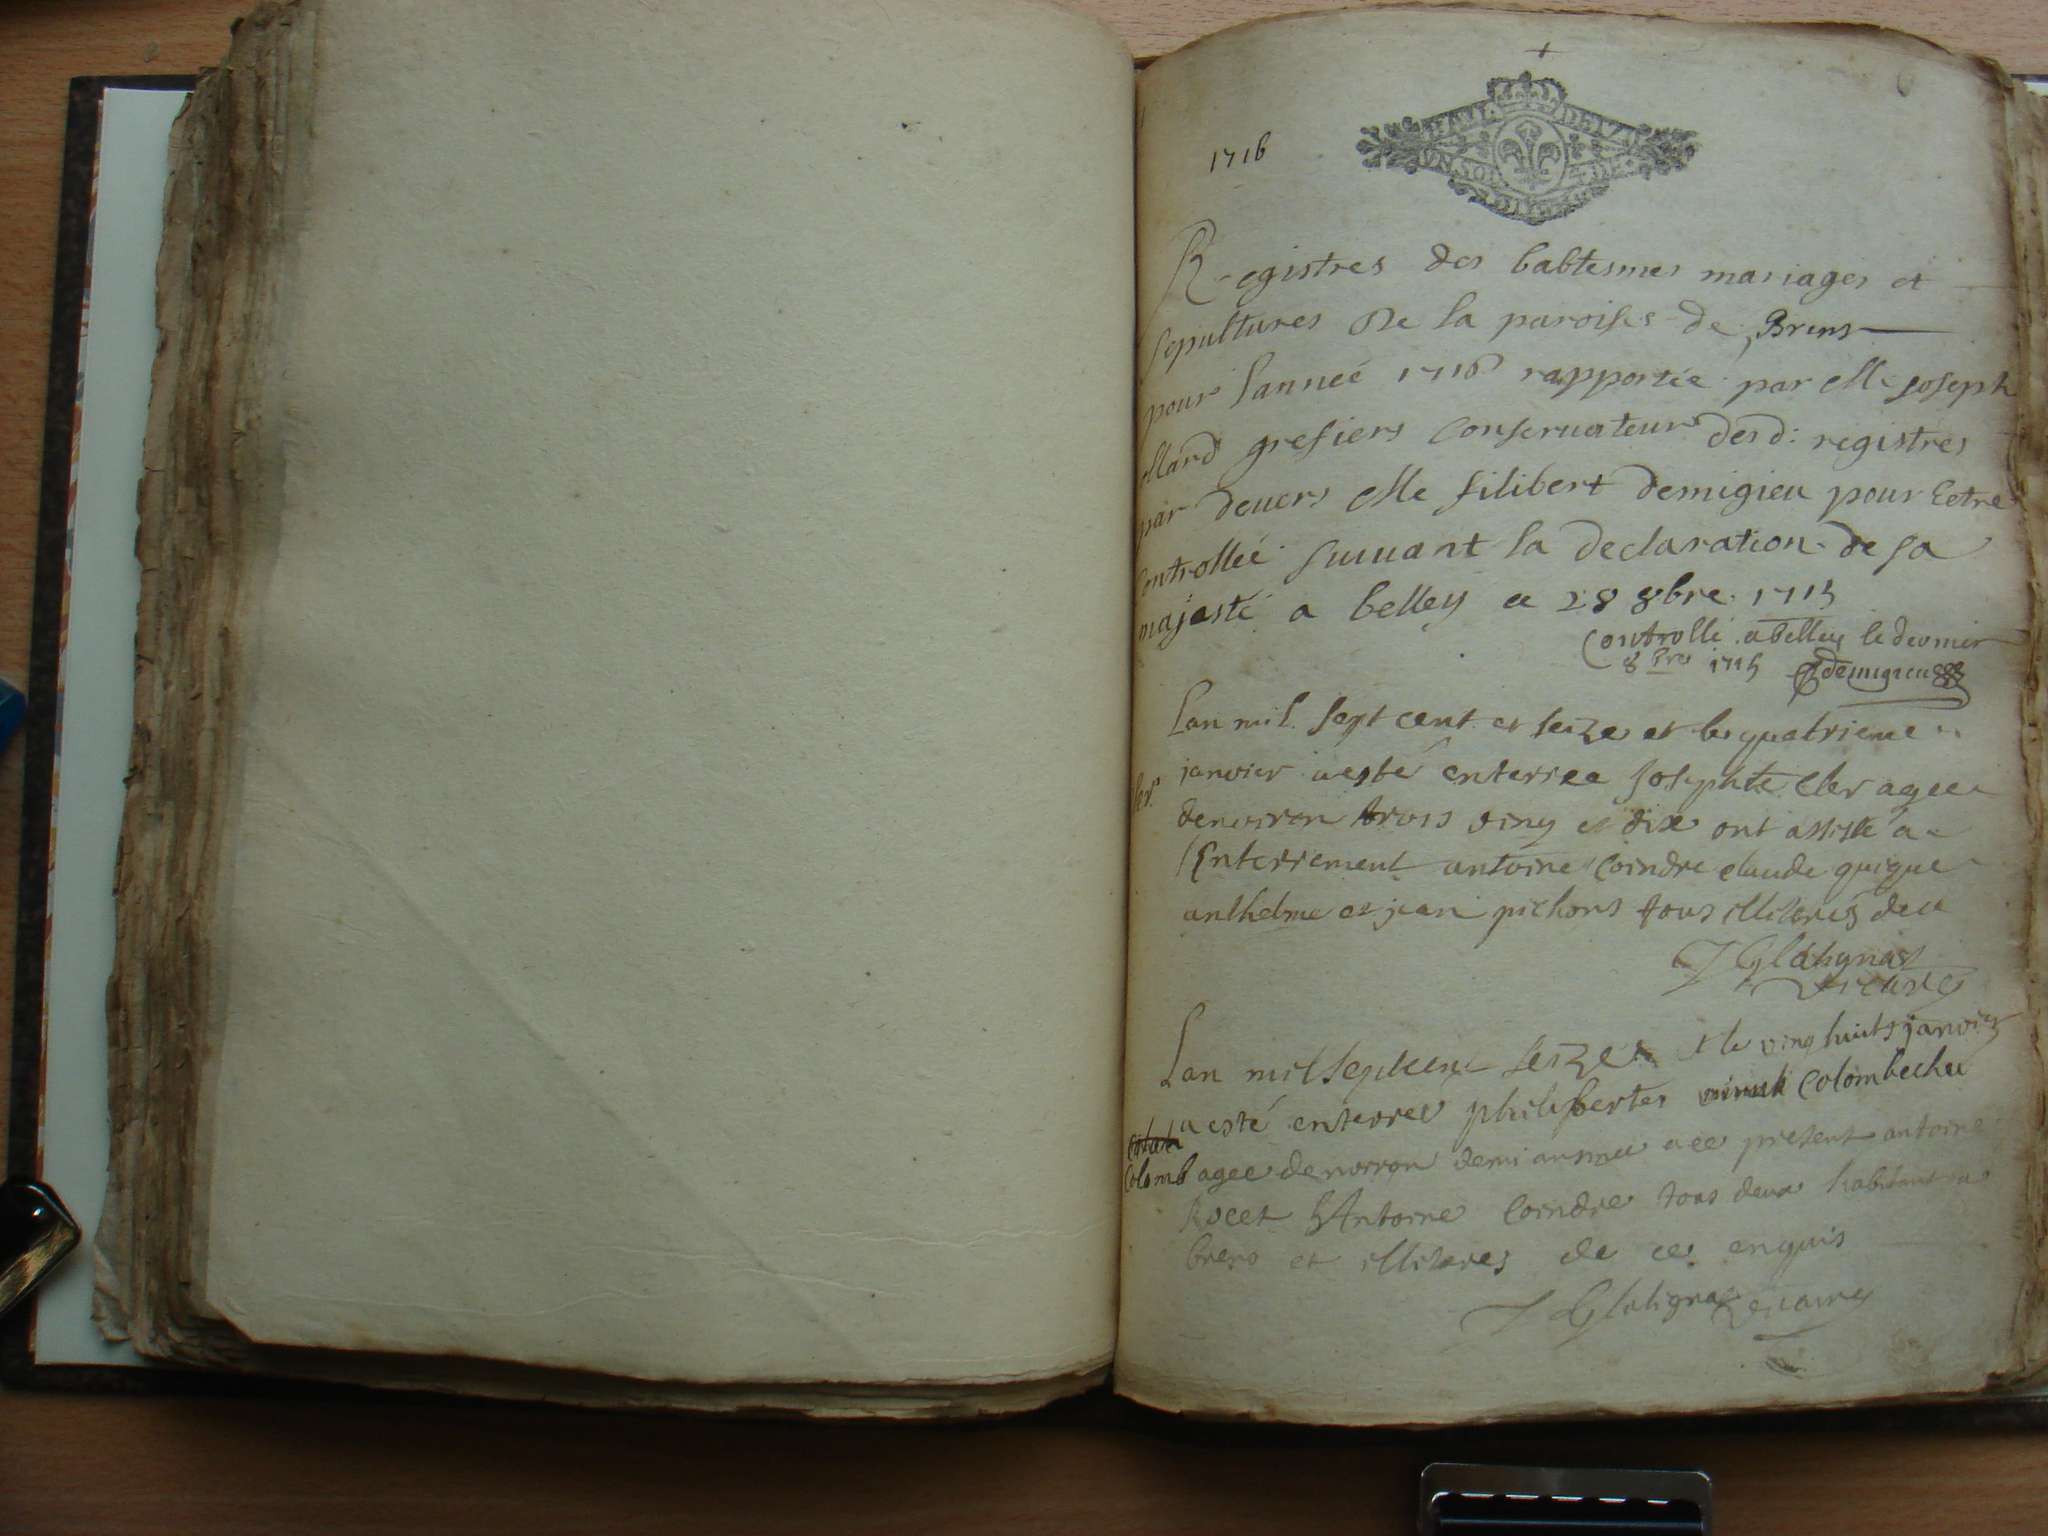 1716
Registres des babtesmes mariages et
sepultures De la paroisse de Brens
pour l'anneé 1716 rapportée par Me Joseph
grefiers conseruateur desd: registres
par deuers Me filibert demigieu pour Estre
Controlleé suiuant la declaration de sa
majesté a belley ce 28 8bre 1715
Controllé a belley le dernier
8bre 1715 demigieu
Lan mil sept cent et seize et le quatrieme
janvier a esté enterree Josephte Cler agee
denviron trois ving et dix ont assisté a
l'Enterrement antoine Coindre claude guigue
anthelme et jean pichons tous illiterés de ce
Lan mil sept cent seize et le ving huits janvier
a esté enterree philibertes Colombechu
Colomb agee denviron demi annee a ce present antoine
Rocet & Antoine Coindre tous deux habitant a
brens et illiteres de ce enquis